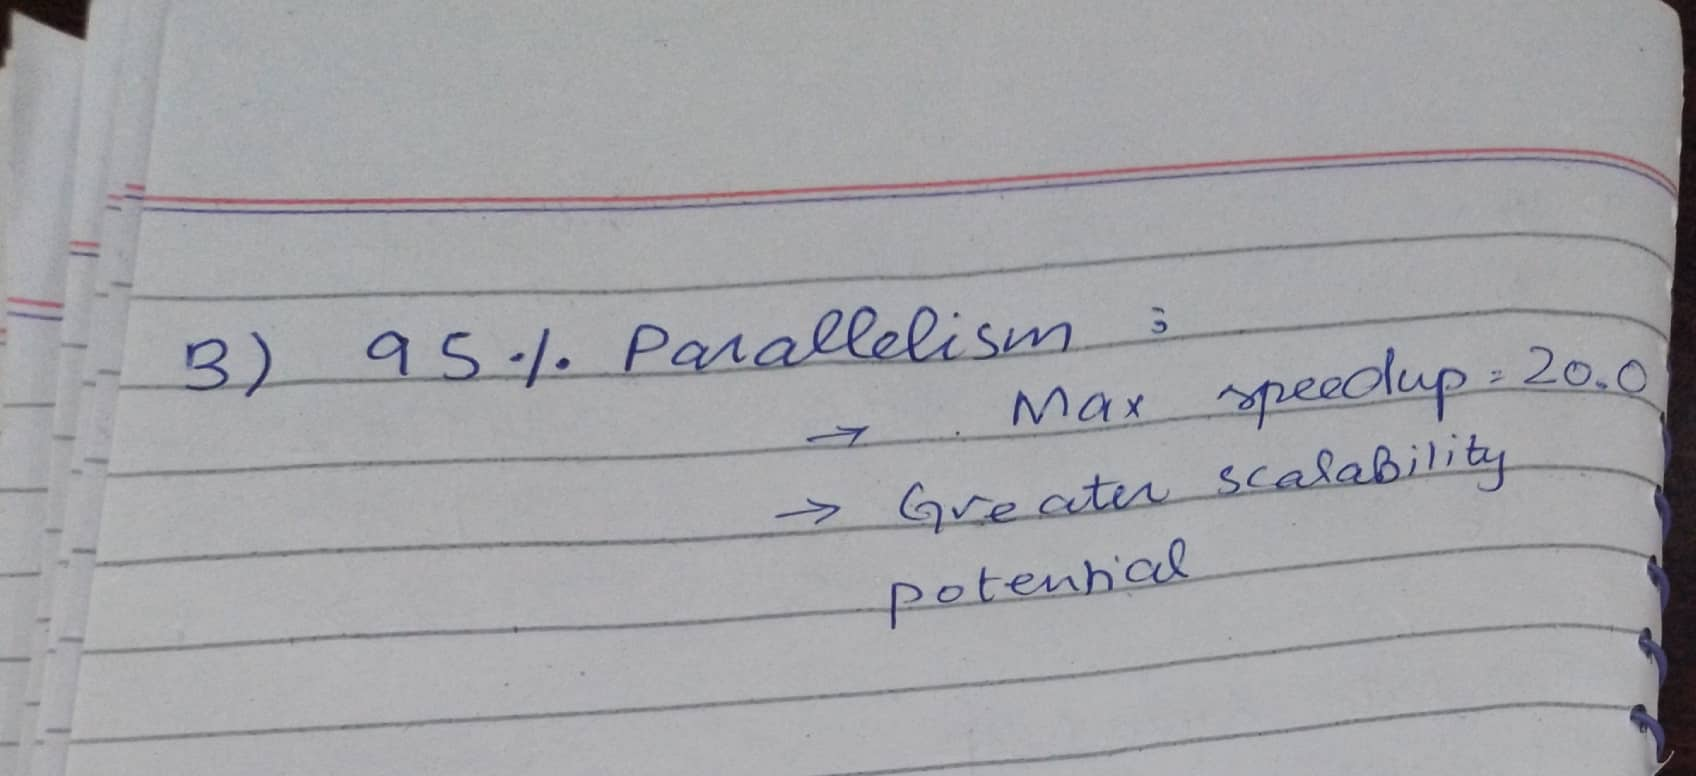 3) 95% Parallelism :
→ Max speedup = 20.0
→ Greater scalability
potential